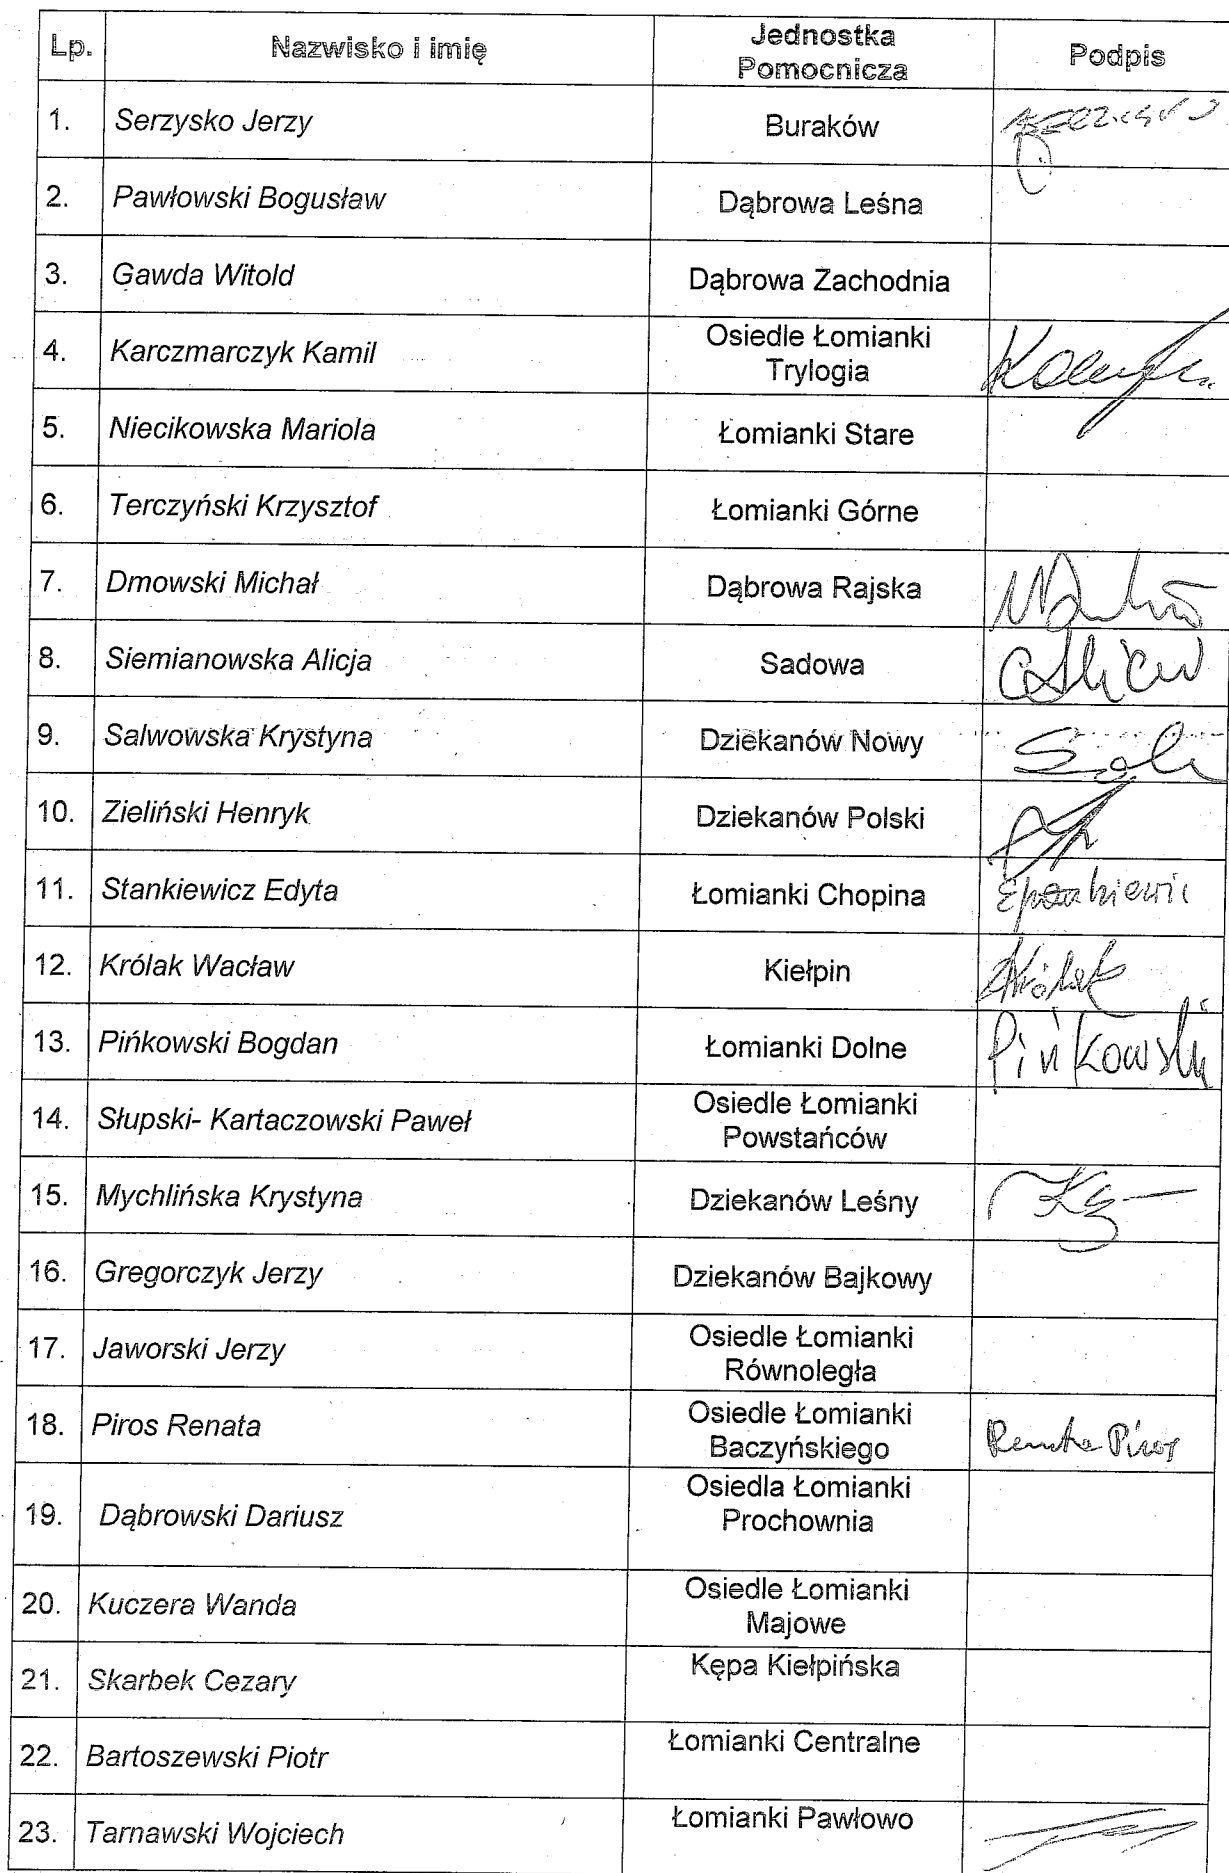 Lp. Nazwisko i imię Jednostka Pomocnicza Podpis
1. Serzysko Jerzy Buraków
2. Pawłowski Bogusław Dąbrowa Leśna
3. Gawda Witold Dąbrowa Zachodnia
4. Karczmarczyk Kamil Osiedle Łomianki Trylogia
5. Niecikowska Mariola Łomianki Stare
6. Terczyński Krzysztof Łomianki Górne
7. Dmowski Michał Dąbrowa Rajska
8. Siemianowska Alicja Sadowa
9. Salwowska Krystyna Dziekanów Nowy
10. Zieliński Henryk Dziekanów Polski
11. Stankiewicz Edyta Łomianki Chopina
12. Królak Wacław Kiełpin
13. Pińkowski Bogdan Łomianki Dolne Pińkowski
14. Słupski- Kartaczowski Paweł Osiedle Łomianki Powstańców
15. Mychlińska Krystyna Dziekanów Leśny
16. Gregorczyk Jerzy Dziekanów Bajkowy
17. Jaworski Jerzy Osiedle Łomianki Równoległa
18. Piros Renata Osiedle Łomianki Baczyńskiego Renata Piros
19. Dąbrowski Dariusz Osiedla Łomianki Prochownia
20. Kuczera Wanda Osiedle Łomianki Majowe
21. Skarbek Cezary Kępa Kiełpińska
22. Bartoszewski Piotr Łomianki Centralne
23. Tarnawski Wojciech Łomianki Pawłowo